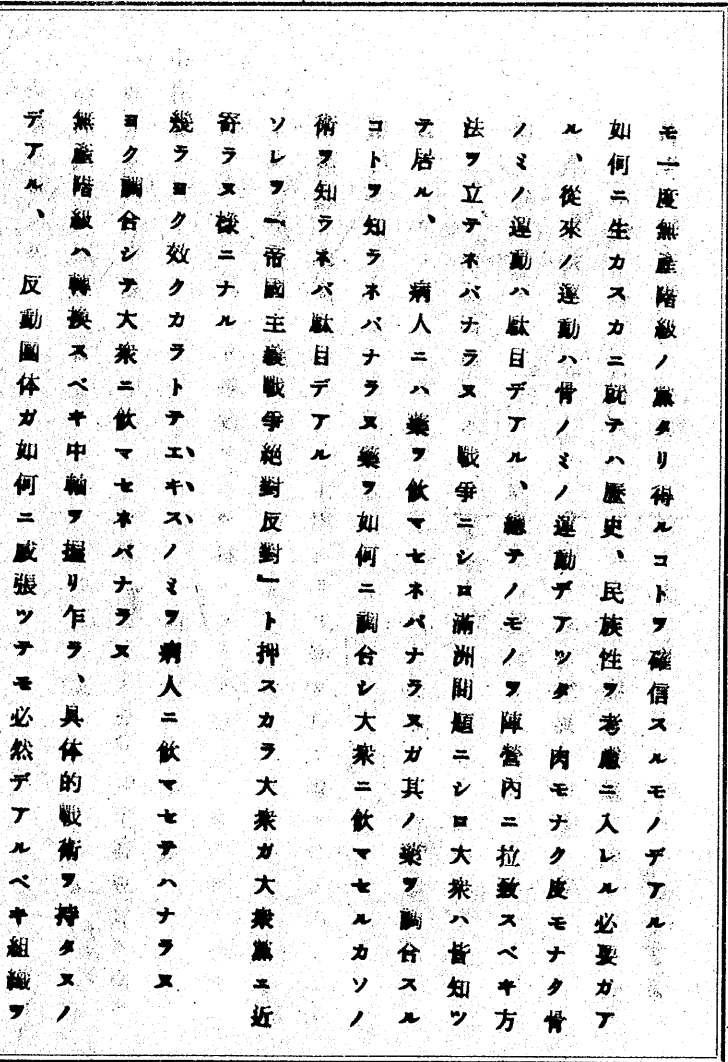 モ一度無產階級ノ黨タリ得ルコトヲ確信スルモノデアル
如何ニ生カスカニ就テハ歷史、民族性ヲ考慮ニ入レル必要ガア
ル、從來ノ運動ハ骨ノミノ運動デアツタ 肉モナク皮モナタ骨
ノミノ運動ハ駄目デアル、總テノモノヲ陣營內ニ拉致スベキ方
法ヲ立テネバナラヌ 戰爭ニシロ滿洲問題ニシロ大衆ハ皆知ツ
テ居ル、 病人ニハ藥ヲ飲マセネバナラヌガ其ノ藥ヲ調合スル
コトヲ知ラネバナラヌ藥ヲ如何ニ調合シ大衆ニ飲マセルカソノ
術ヲ知ラネバ駄目デアル
ソレヲ「帝國主義戰爭絕對反對」ト押スカラ大衆ガ大衆黨ニ近
寄ラヌ樣ニナル
幾ラヨク效クカラトテエ、キ、ス、ノミヲ病人ニ飲マセテハナラヌ
ヨク調合シテ大衆ニ飲マセネバナラヌ
無產階級ハ轉換スベキ中軸ヲ握リ乍ラ、具体的戰術ヲ持タヌノ
デアル、 反動團体ガ如何ニ威張ツテモ必然デアルベキ組織ヲ